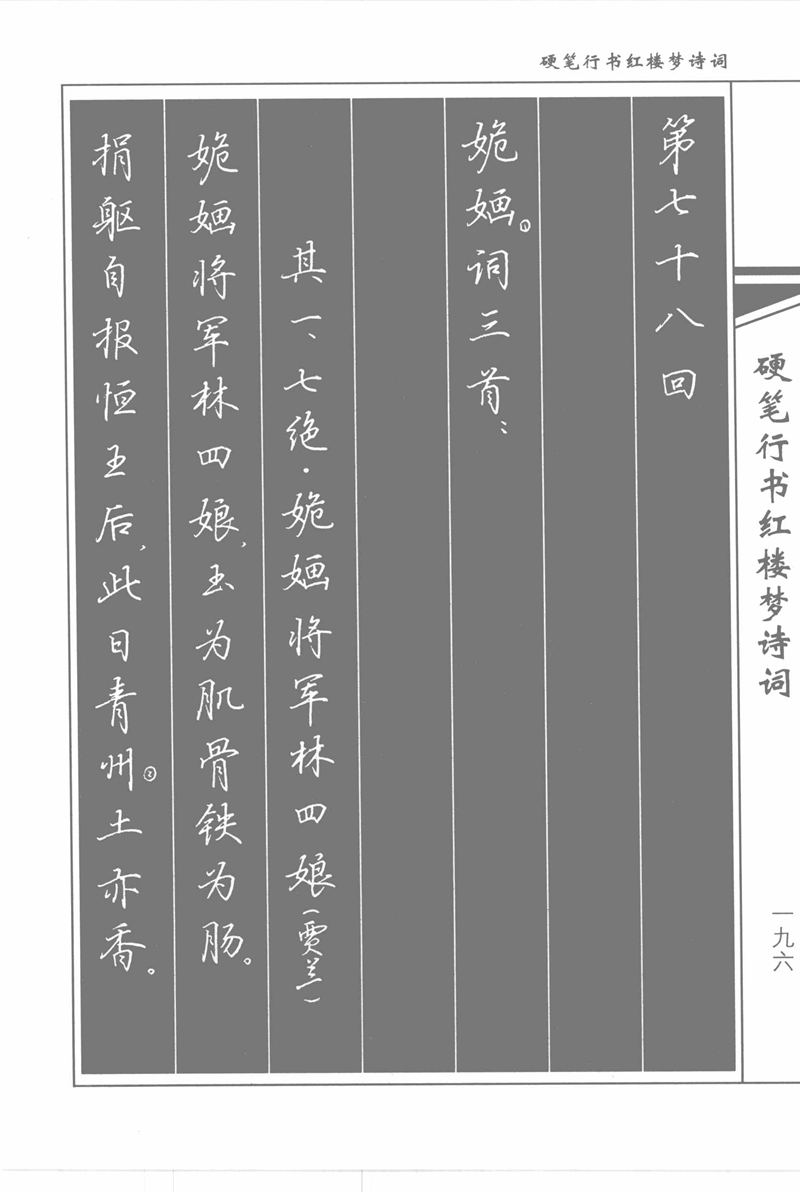 硬笔行书红楼梦诗词
第七十八回
姽婳①词三首：
其一、七绝·姽婳将军林四娘（贾兰）
姽婳将军林四娘，玉为肌骨铁为肠。
捐躯自报恒王后，此日青州②土亦香。
硬笔行书红楼梦诗词
一九六